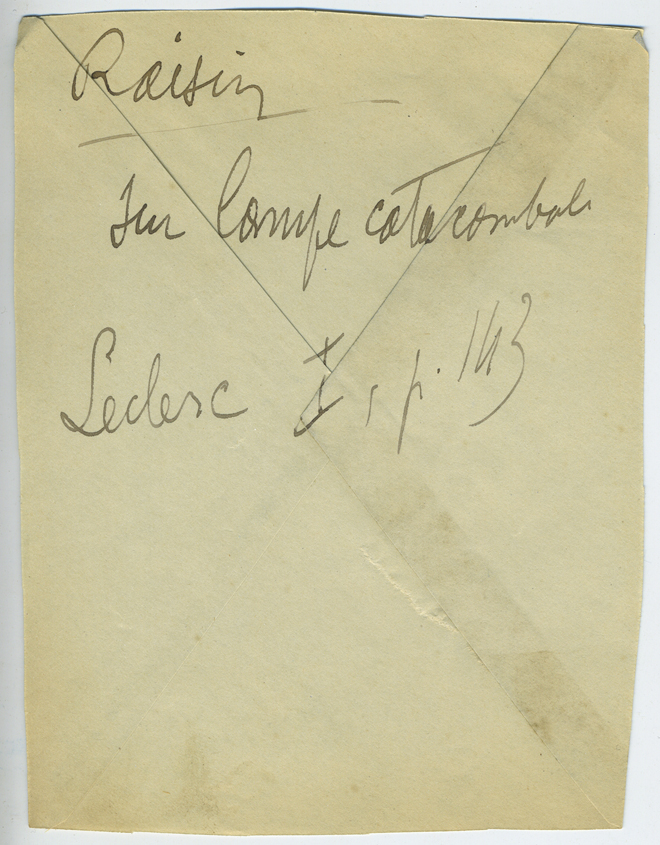 Raisin
sur lampe catacombale
Leclerc I, p. 143